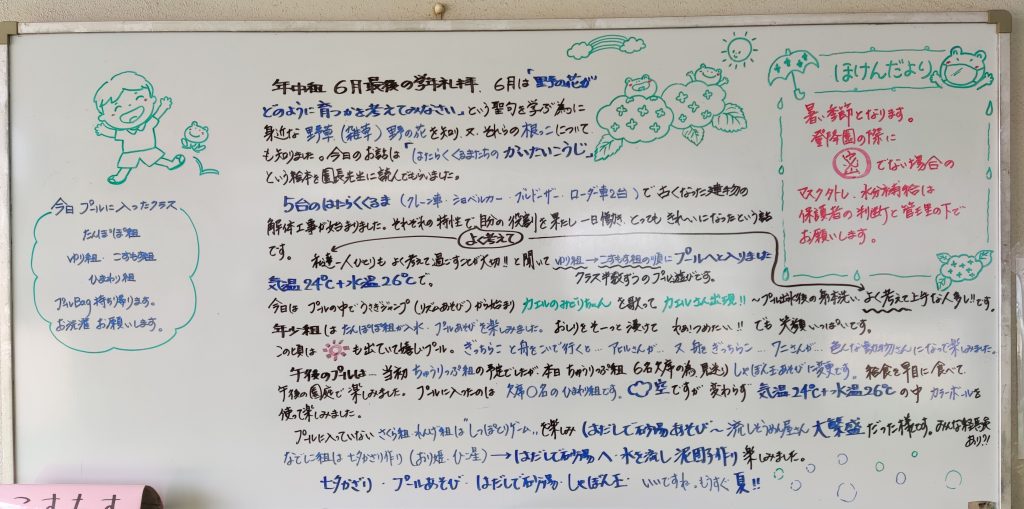 今日 プールに入ったクラス
たんぽぽ組
ゆり組・こすもす組
ひまわり組
プールBag 持ち帰ります。
お洗濯 お願いします。
年中組 6月最後の学年礼拝. 6月は「野の花が
どのように育つかを考えてみなさい。」という聖句を学ぶ為に
身近な 野草(雑草)野の花を知り、又、それらの根っこについて
も知りました。今日のお話は「はたらくくるまたちの かいたいこうじ」
という絵本を園長先生に読んでもらいました。
5台のはたらくくるま (クレーン車・ショベルカー・ブルドーザー・ローダー車2台) で古くなった建物の
解体工事が始まりました。それぞれの特性で、自分の役割を果たし一日働き、とってもきれ〜いになったという話
です。
よく考えて
私達一人ひとりも よく考えて過ごす 大切!! と聞いて ゆり組→こすもす組の順に プールへと入りました
クラス半数ずつのプール遊びです。
気温24℃+水温26℃で。
今日は プールの中で うさぎジャンプ(リズムあそび)から始まり カエルのみどりちゃん を歌って カエルさん出現!! 〜プール出水後の 洗い よく考えて上手な人多し!!です。
年少組は たんぽぽ組が入水・プールあそびを楽しみました。おしりをそーっと浸けて わぁ!つめたい!! でも 笑顔いっぱいです。
この頃は も出ていて嬉しいプール。ぎっちらこ と舟をこいで行くと… アヒルさんが… 又 舟を ぎっちらこ… ワニさんが… 色んな動物さんになって楽しみました。
午後のプールは… 当初 ちゅうりっぷ組の予定でしたが、本日 ちゅうりっぷ組 6名欠席の為、見送り しゃぼん玉あそびに変更です。給食を早目に食べて、
午後の園庭で楽しみました。プールに入ったのは 欠席〇名の ひまわり組です。 空ですが 変わらず 気温24℃+水温26℃の中 カラーボールを
使って楽しみました。
プールに入っていない さくら組・れんげ組は"しっぽとりゲーム"を楽しみ はだしで砂場あそび〜 流しそうめん屋さん 大繁盛だった様です。みんな
あり?!
なでしこ組は 七夕かざり作り(おり姫・ひこ星)→ はだしで砂場へ・水を流し 泥 作り 楽しみました。
七夕かざり・プールあそび・はだしで砂場・しゃぼん玉・いいですね。もうすぐ 夏!!
ほけんだより
暑い季節となります。
登降園の際に
密 でない場合の
マスク外し、水分補給は
保護者の判断と管理の下で
お願いします。
こすもす